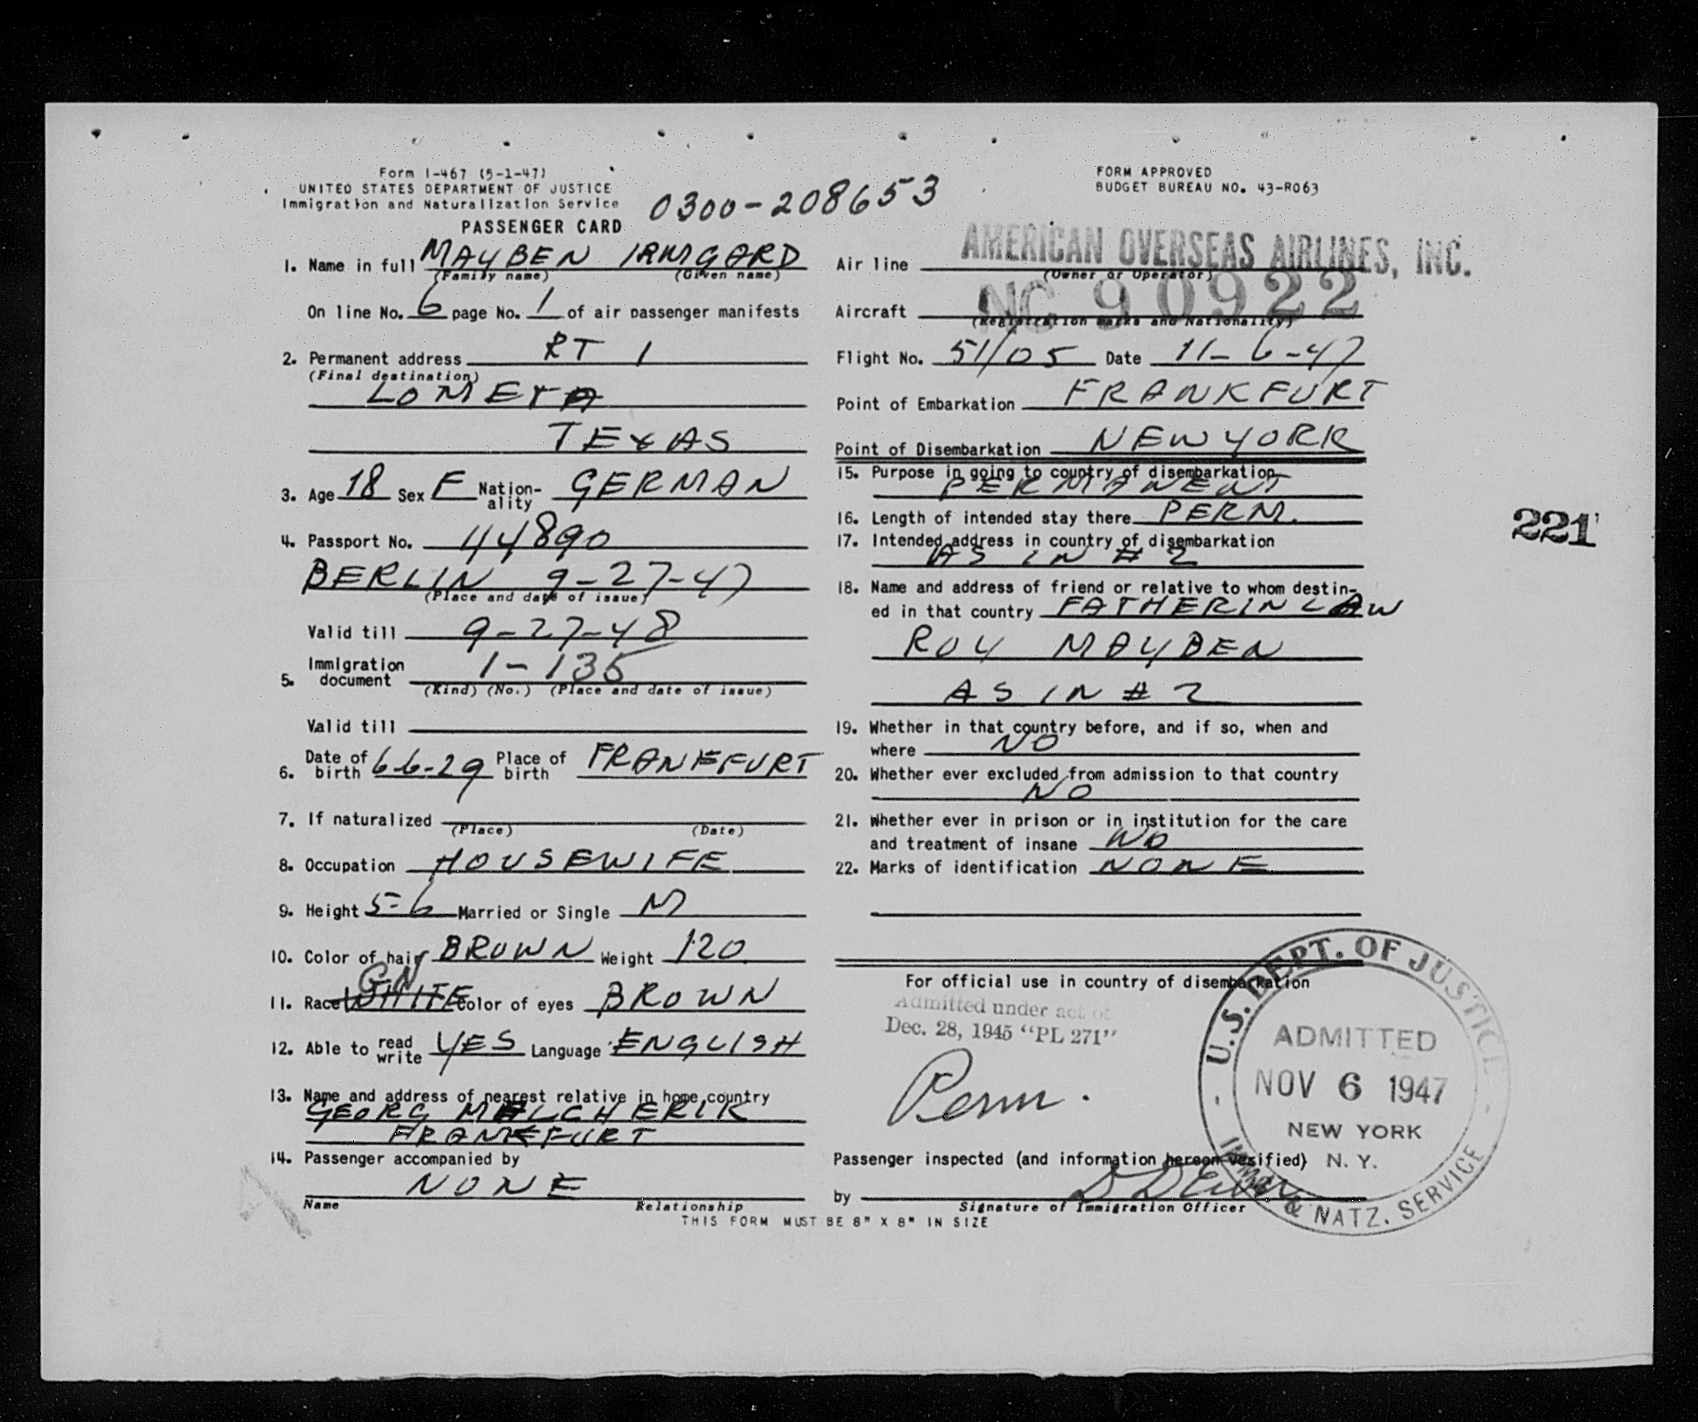 Form I-467 (5-1-47)
UNITED STATES DEPARTMENT OF JUSTICE
Immigration and Naturalization Service
PASSENGER CARD
0300-208653
FORM APPROVED
BUDGET BUREAU NO. 43-R063
1. Name in full MAYBEN IRMGARD
(Family name) (Given name)
On line No. 6 page No. 1 of air passenger manifests
2. Permanent address RT 1
(Final destination)
LOMETA
TEXAS
3. Age 18 Sex F Nation-ality GERMAN
4. Passport No. 44890
BERLIN 9-27-47
(Place and date of issue)
Valid till 9-27-48
5. Immigration document 1-135
(Kind) (No.) (Place and date of issue)
Valid till
6. Date of birth 6-6-29 Place of birth FRANKFURT
7. If naturalized
(Place) (Date)
8. Occupation HOUSEWIFE
9. Height 5-6 Married or Single M
10. Color of hair BROWN Weight 120
GN
11. Race WHITE Color of eyes BROWN
12. Able to read write YES Language ENGLISH
13. Name and address of nearest relative in home country
GEORG MELCHERIK
FRANKFURT
14. Passenger accompanied by
NONE
Name Relationship
THIS FORM MUST BE 8" X 8" IN SIZE
Air line AMERICAN OVERSEAS AIRLINES, INC.
(Owner or Operator)
Aircraft NC 90922
(Registration marks and Nationality)
Flight No. 51/05 Date 11-6-47
Point of Embarkation FRANKFURT
Point of Disembarkation NEW YORK
15. Purpose in going to country of disembarkation
PERMANENT
16. Length of intended stay there PERM.
17. Intended address in country of disembarkation
AS IN # 2
18. Name and address of friend or relative to whom destin-
ed in that country FATHER IN LAW
ROY MAYBEN
AS IN # 2
19. Whether in that country before, and if so, when and
where NO
20. Whether ever excluded from admission to that country
NO
21. Whether ever in prison or in institution for the care
and treatment of insane NO
22. Marks of identification NONE
221
For official use in country of disembarkation
Admitted under act of
Dec. 28, 1945 "PL 271"
Perm.
U.S. DEPT. OF JUSTICE
ADMITTED
NOV 6 1947
NEW YORK
N. Y.
IMMIG. & NATZ. SERVICE
Passenger inspected (and information hereon verified)
by
Signature of Immigration Officer